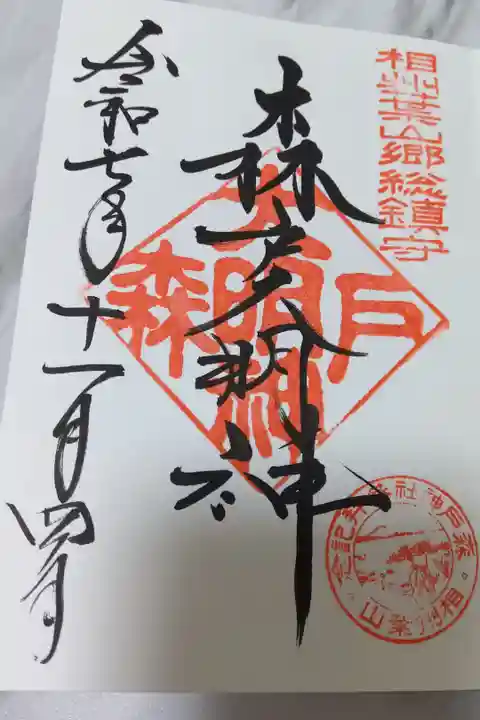 相州葉山郷総鎮守
森戸大明神
森戸大明神
森戸神社参拝記念。相州葉山
令和七年十一月四日